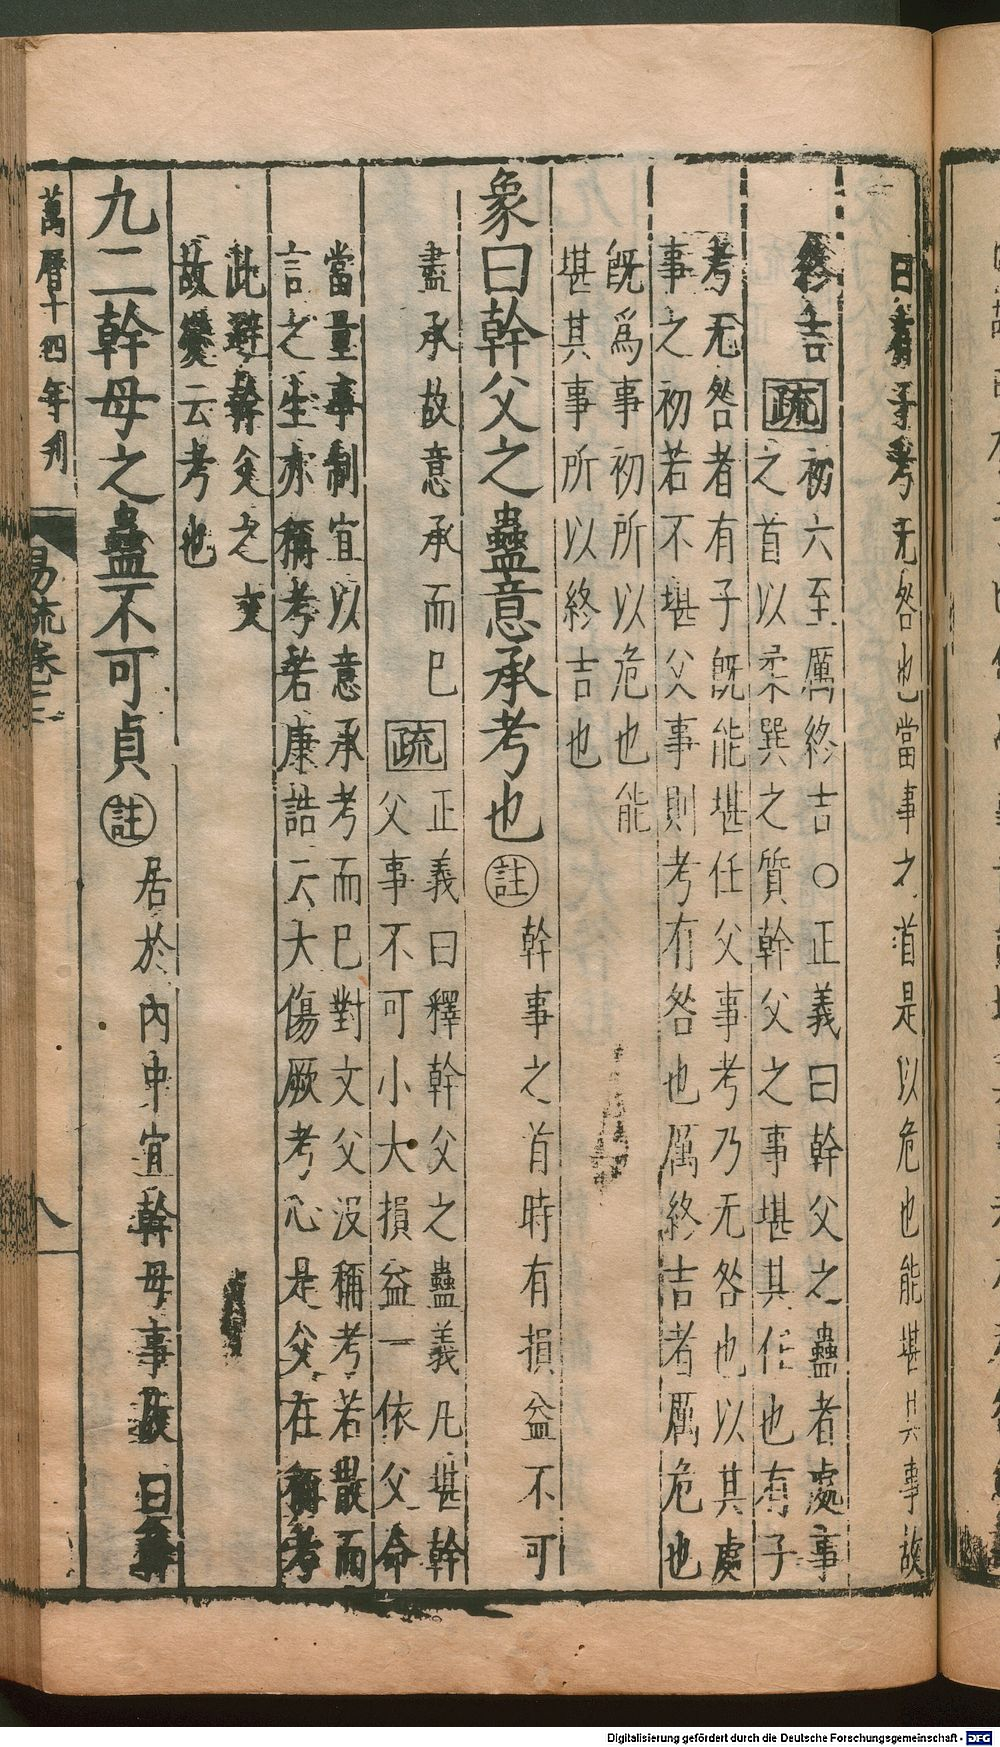 曰有子考无咎也當事之道是以危也能堪其事故
終吉
疏
初六至厲終吉○正義曰幹父之蠱者處事
之首以柔巽之質幹父之事堪其任也有子
考无咎者有子既能堪任父事考乃无咎也以其處
事之初若不堪父事則考有咎也厲終吉者厲危也
既爲事初所以危也能
堪其事所以終吉也
象曰幹父之蠱意承考也
註
幹事之首時有損益不可
盡承故意承而已
疏
正義曰釋幹父之蠱義凡堪幹
父事不可小大損益一依父命
當量事制宜以意承考而已對文父沒稱考若散而
言之生亦稱考若康誥云大傷厥考心是父在稱考
此避幹父之文
故變云考也
九二幹母之蠱不可貞
註
居於內中宜幹母事故曰幹
萬曆十四年刊
易疏卷三
八
Digitalisierung gefördert durch die Deutsche Forschungsgemeinschaft - DFG